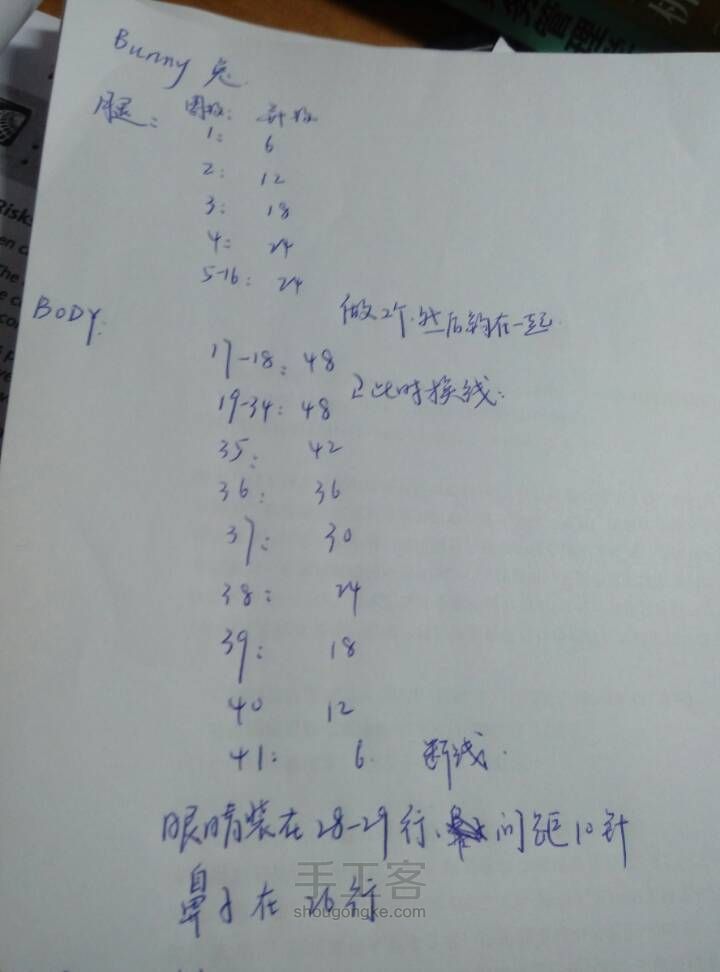 Bunny 兔
腿: 圈数: 针数
1: 6
2: 12
3: 18
4: 24
5-16: 24
做2个.然后钩在一起.
BODY:
17-18: 48
19-34: 48 此时换线.
35: 42
36: 36
37: 30
38: 24
39: 18
40 12
41: 6. 断线.
眼睛装在28-29行、间距10针
鼻子在26行
手工客
shougongke.com
Risks
en c
The